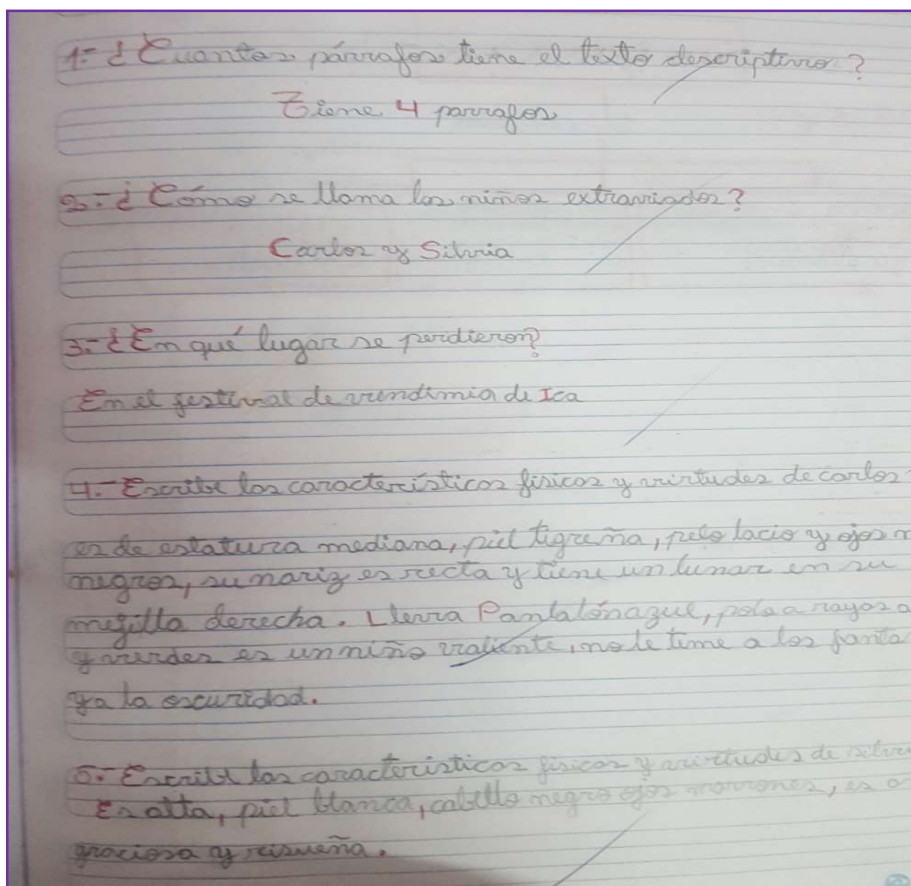 1.- ¿Cuantos párrafos tiene el texto descriptivo?
Tiene 4 parrafos
2.- ¿Cómo se llama los niños extraviados?
Carlos y Silvia
3.- ¿En qué lugar se perdieron?
En el festival de vendimia de Ica
4.- Escribe los característicos físicos y virtudes de carlos
es de estatura mediana, piel tigreña, pelo lacio y ojos
negros, su nariz es recta y tiene un lunar en su
mejilla derecha. Lleva Pantalón azul, polo a rayos
y verdes es un niño valiente, no le time a los
y a la oscuridad.
5.- Escribe las características físicas y virtudes de
Es alta, piel blanca, cabello negro ojos marrones, es
graciosa y risueña.